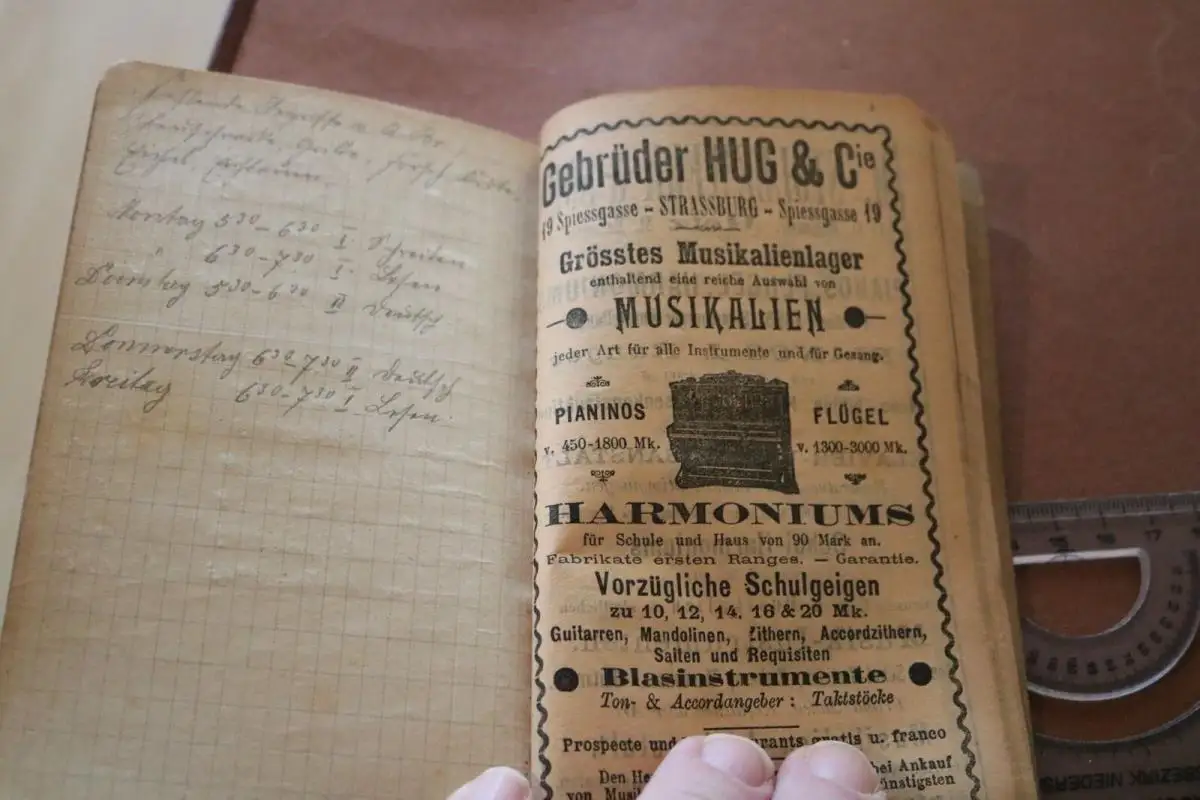 Montag 5³⁰-6³⁰ I. Schreiben
" 6³⁰-7³⁰ I. Lesen
Dienstag 5³⁰-6³⁰ II Deutsch
Donnerstag 6³⁰-7³⁰ II Deutsch
Freitag 6³⁰-7³⁰ I. Lesen.
Gebrüder HUG & Cie
19 Spiessgasse - STRASSBURG - Spiessgasse 19
Grösstes Musikalienlager
enthaltend eine reiche Auswahl von
MUSIKALIEN
jeder Art für alle Instrumente und für Gesang.
PIANINOS
v. 450-1800 Mk.
FLÜGEL
v. 1300-3000 Mk.
HARMONIUMS
für Schule und Haus von 90 Mark an.
Fabrikate ersten Ranges. — Garantie.
Vorzügliche Schulgeigen
zu 10, 12, 14, 16 & 20 Mk.
Guitarren, Mandolinen, Zithern, Accordzithern,
Saiten und Requisiten
Blasinstrumente
Ton- & Accordangeber : Taktstöcke
Prospecte und gratis u. franco
Den bei Ankauf
von
14 15 16 17 18